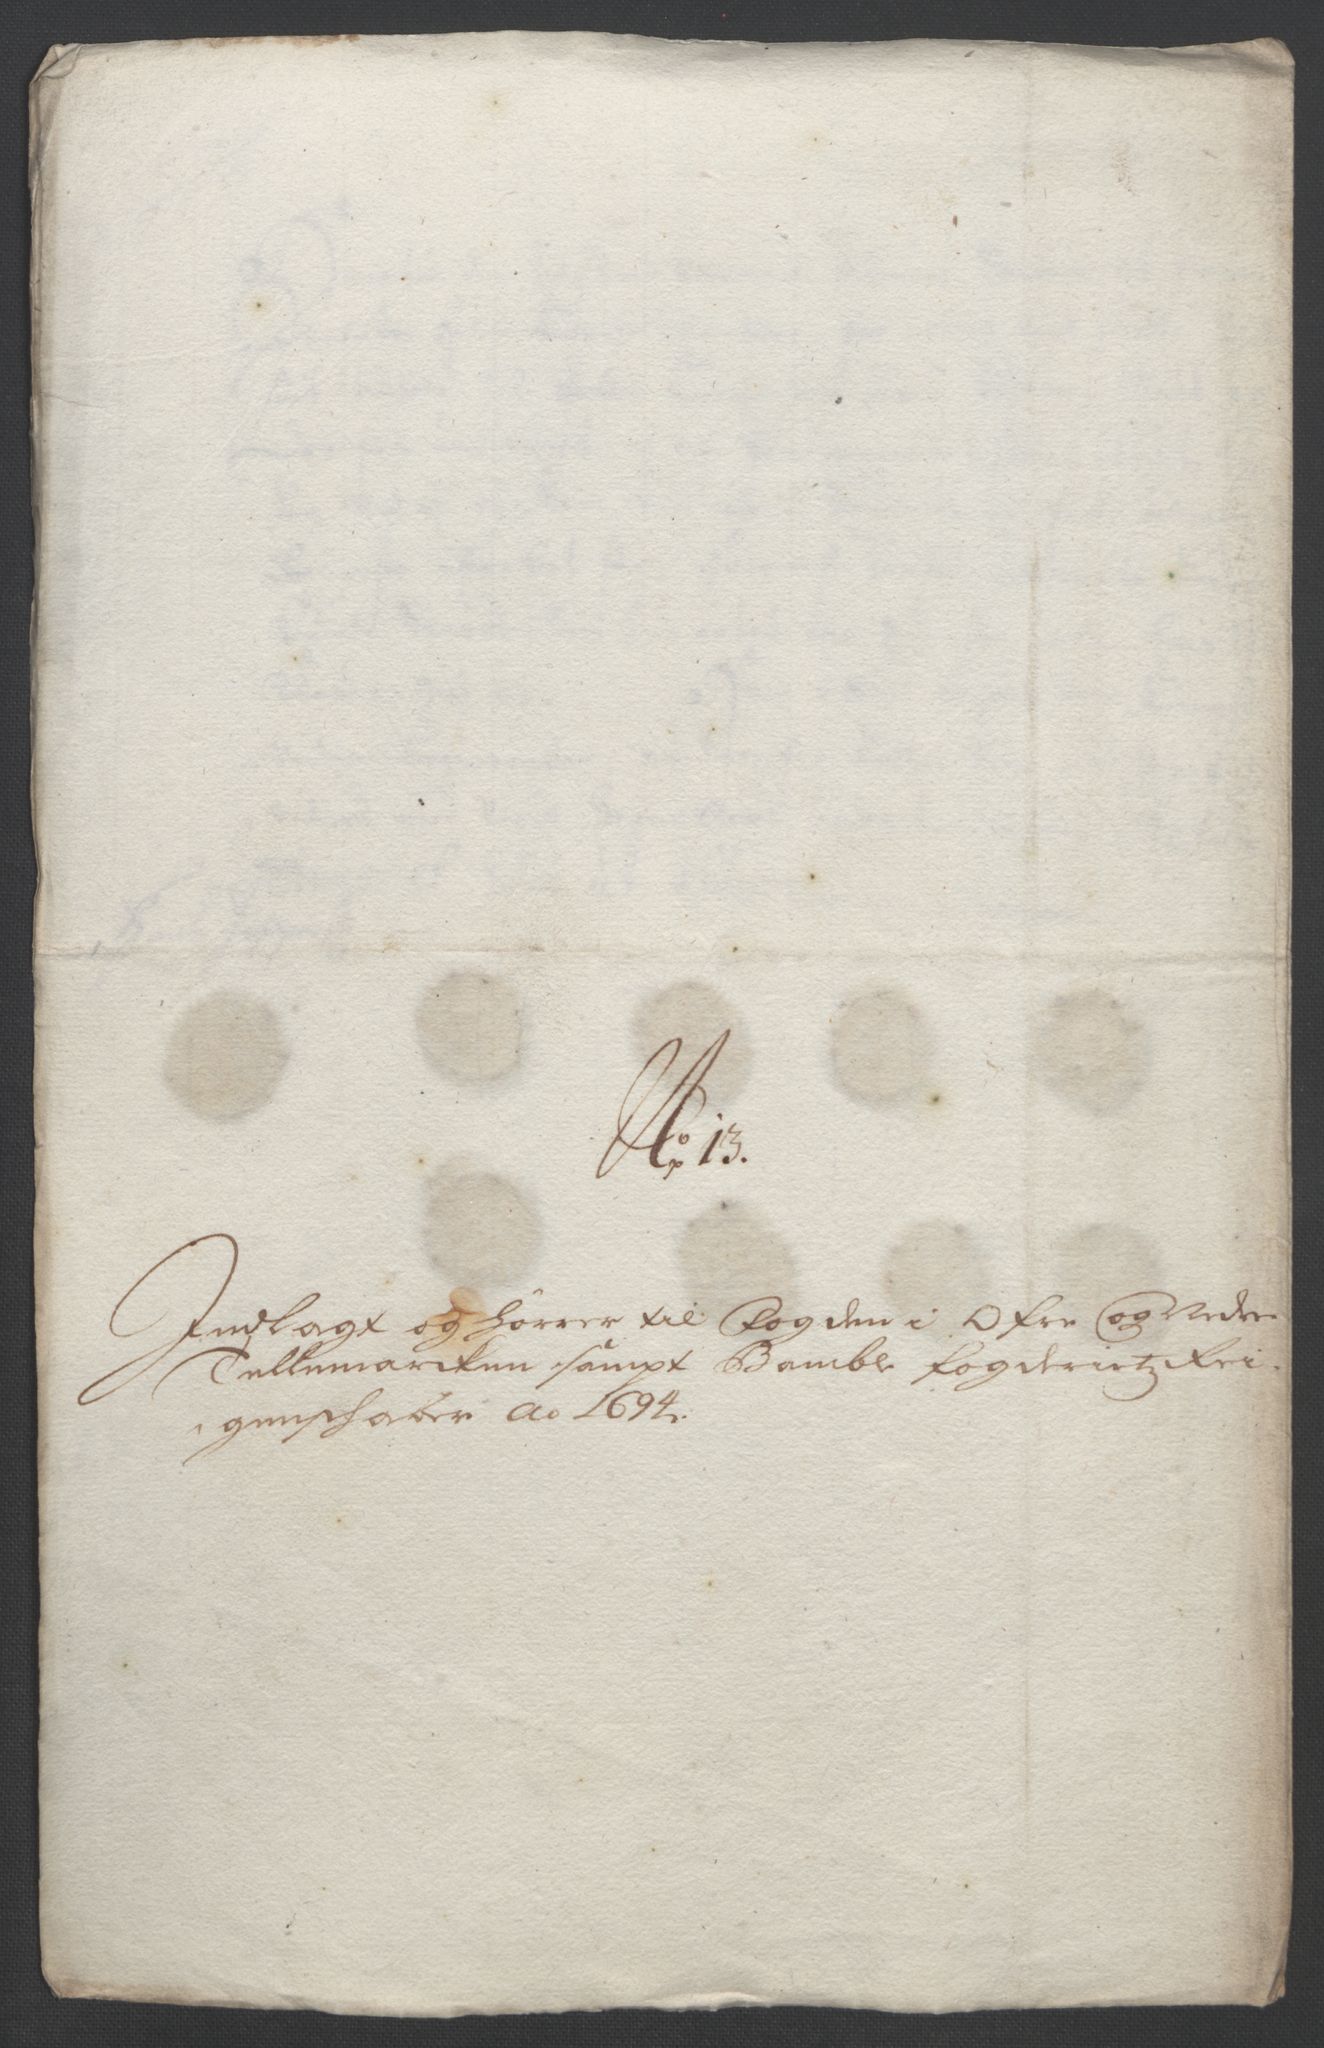 No 13.
Indlagt og hörrer til Fogden i Ofre og Nedre
Tellemarcken sampt Bamble fogderietz Rei-
genschaber Ao 1694.